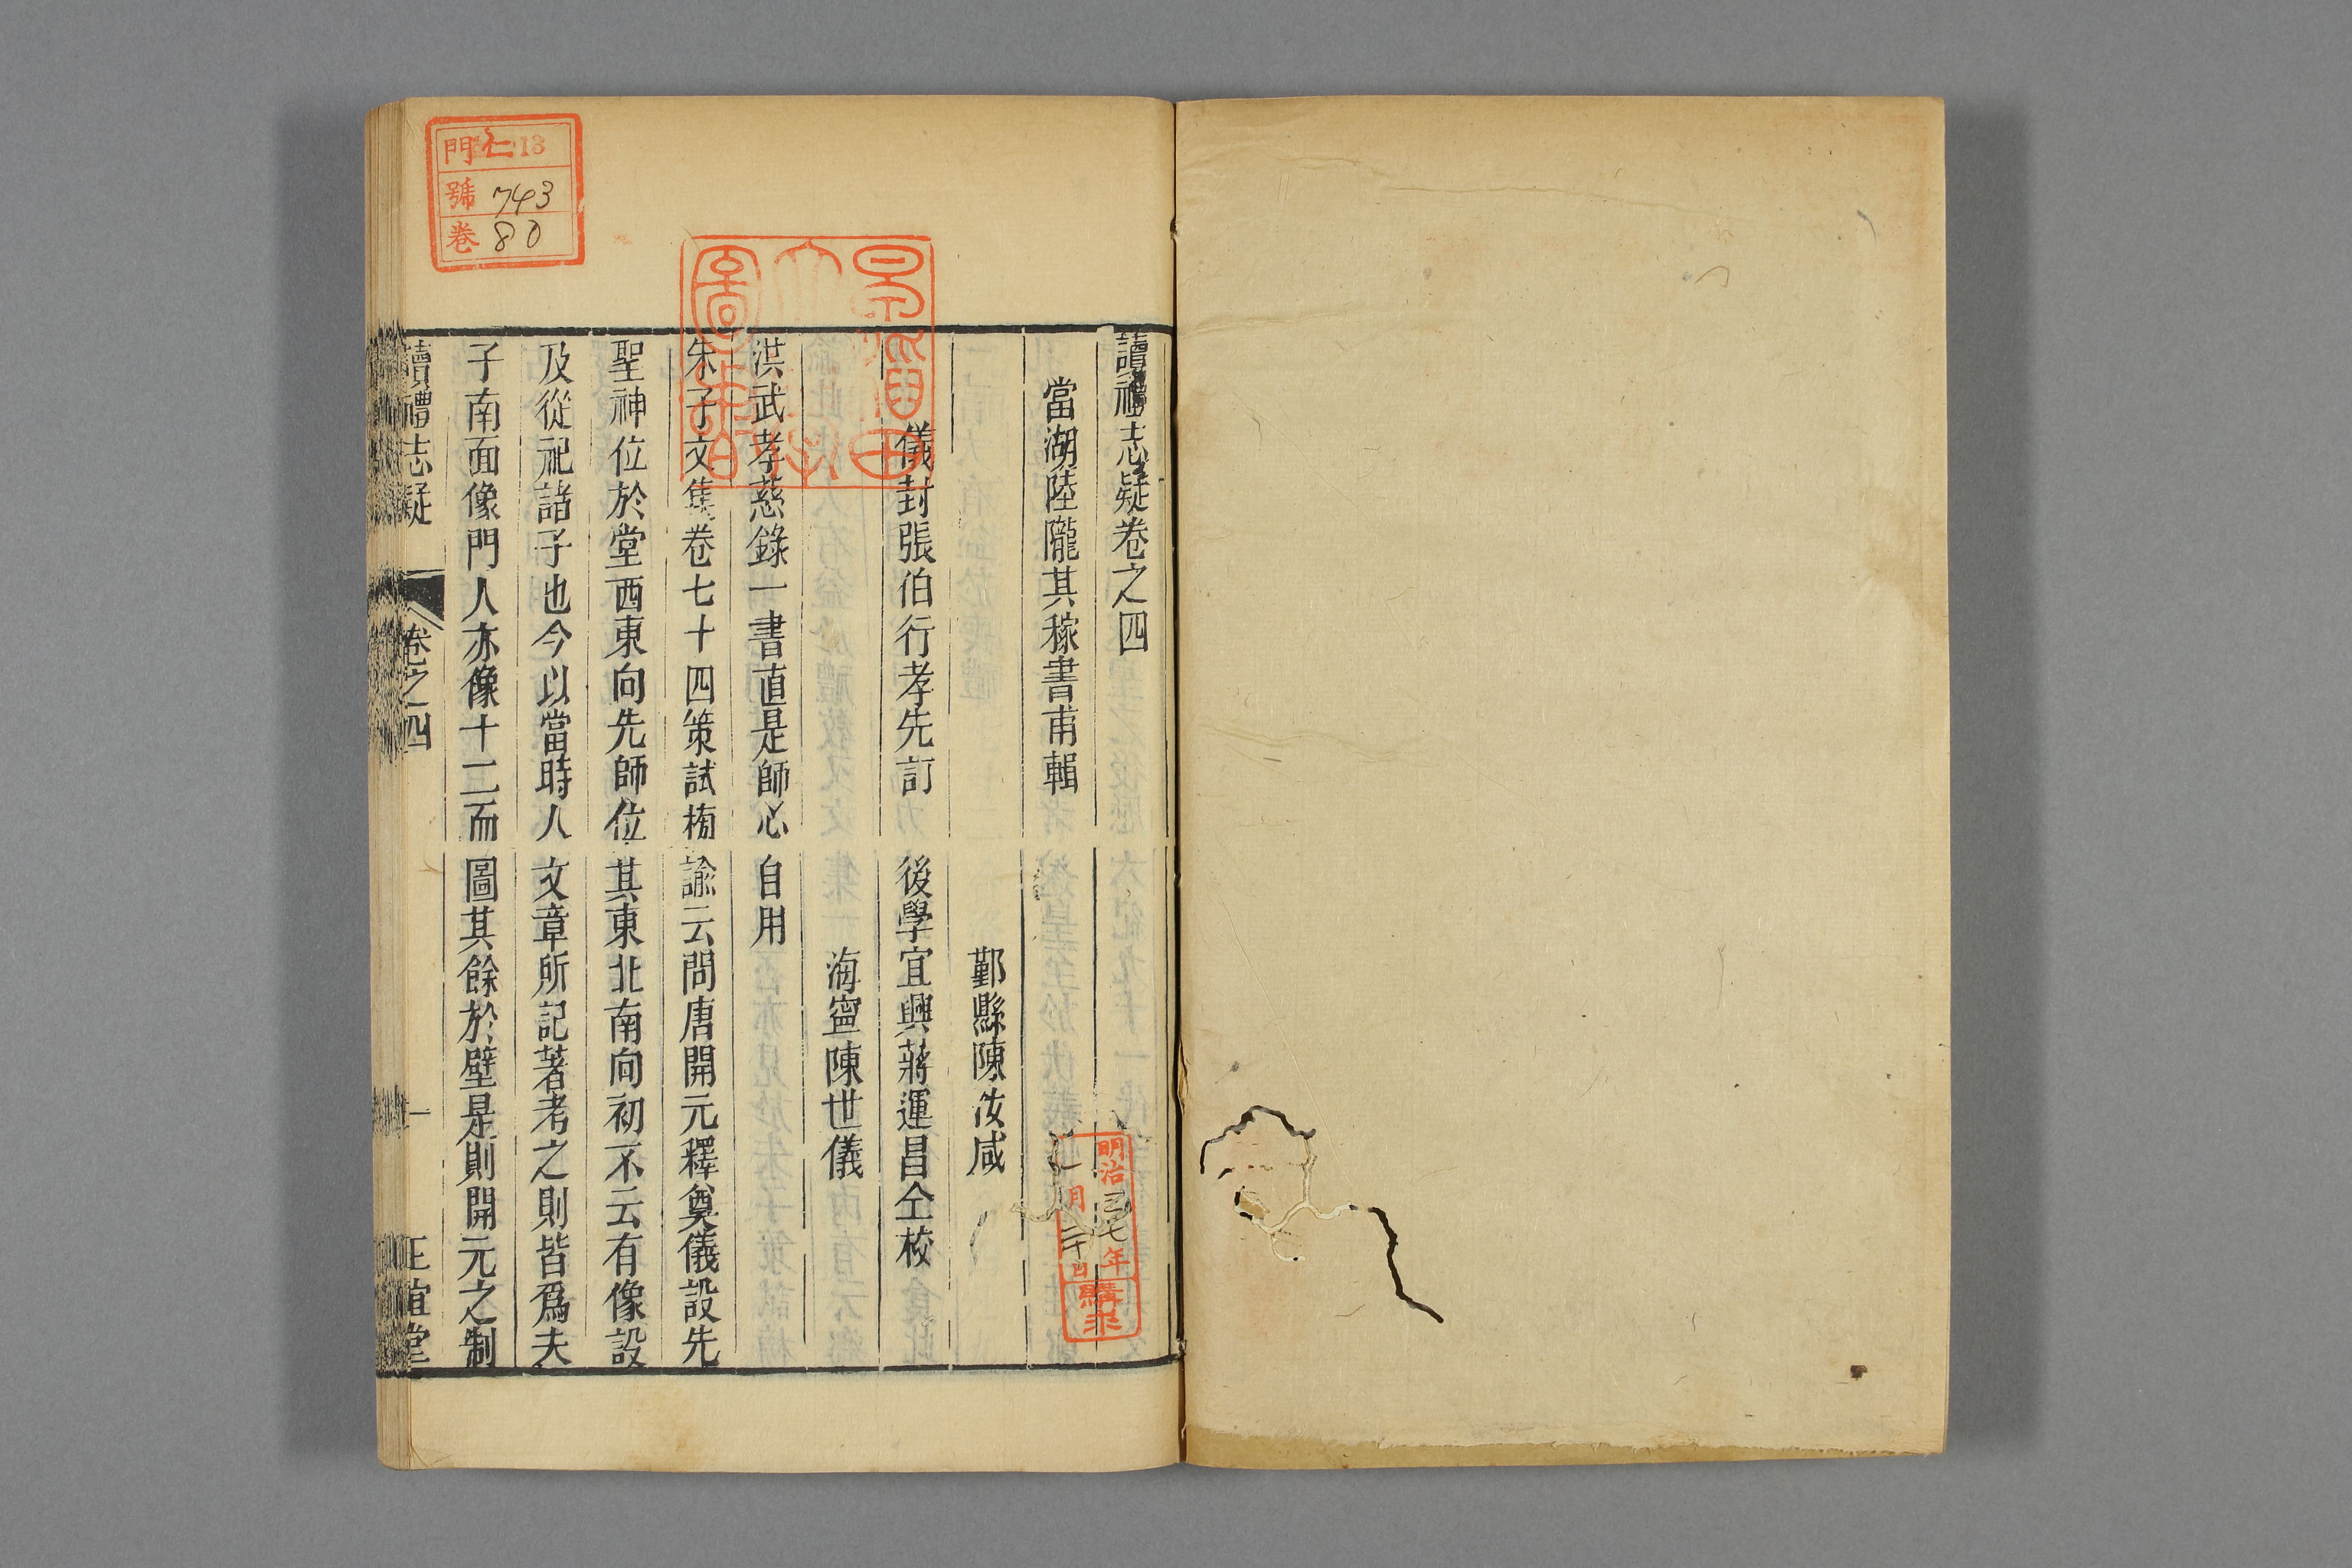 讀禮志疑卷之四
當湖陸隴其稼書甫輯
鄞縣陳汝咸
儀封張伯行孝先訂 後學宜興蔣運昌仝校
海寧陳世儀
洪武孝慈錄一書直是師心自用
朱子文集卷七十四策試牓諭云問唐開元釋奠儀設先
聖神位於堂西東向先師位其東北南向初不云有像設
及從祀諸子也今以當時人文章所記著考之則皆爲夫
子南面像門人亦像十二而圖其餘於壁是則開元之制
讀禮志疑 卷之四 一 正誼堂
門 仁 13
號 743
卷 80
明治三七年
一月二十日
購求